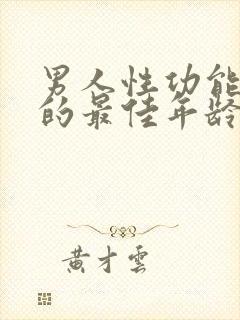 男人性功能
的最佳年龄
黄才云